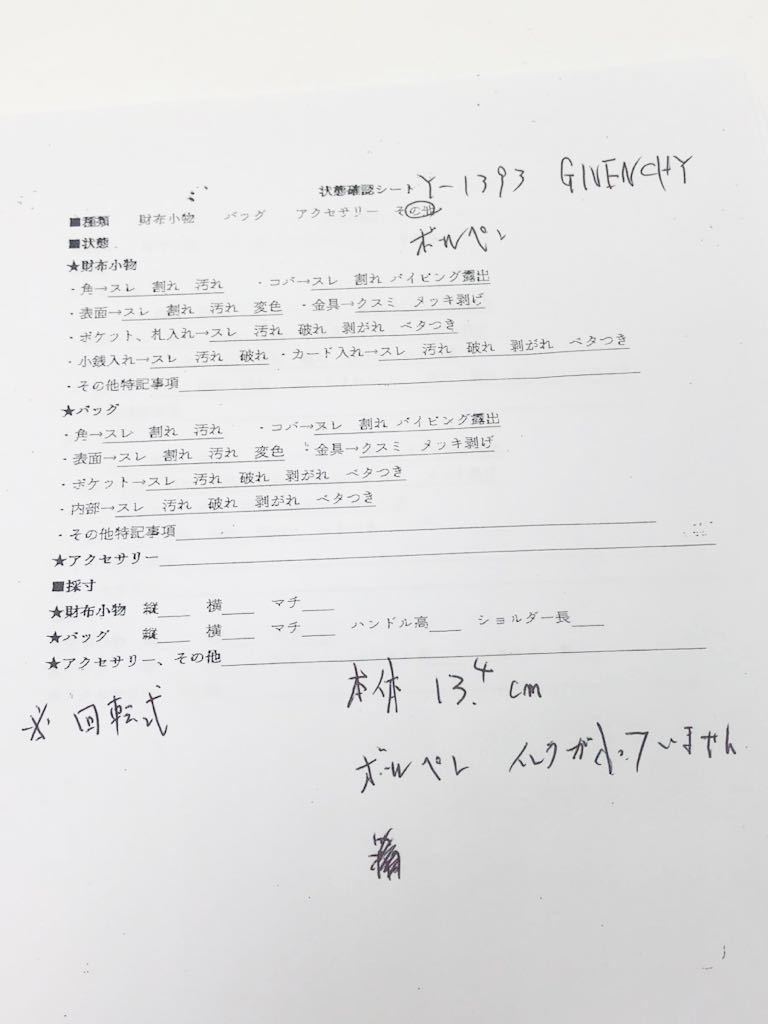 状態確認シート Y-1393 GIVENCHY
■種類 財布小物 バッグ アクセサリー その他
ボールペン
■状態
★財布小物
・角→スレ 割れ 汚れ ・コバ→スレ 割れ パイピング露出
・表面→スレ 割れ 汚れ 変色 ・金具→クスミ メッキ剥げ
・ポケット、札入れ→スレ 汚れ 破れ 剥がれ ベタつき
・小銭入れ→スレ 汚れ 破れ ・カード入れ→スレ 汚れ 破れ 剥がれ ベタつき
・その他特記事項
★バッグ
・角→スレ 割れ 汚れ ・コバ→スレ 割れ パイピング露出
・表面→スレ 割れ 汚れ 変色 ・金具→クスミ メッキ剥げ
・ポケット→スレ 汚れ 破れ 剥がれ ベタつき
・内部→スレ 汚れ 破れ 剥がれ ベタつき
・その他特記事項
★アクセサリー
■採寸
★財布小物 縦 横 マチ
★バッグ 縦 横 マチ ハンドル高 ショルダー長
★アクセサリー、その他
本体 13.4 cm
※ 回転式
ボールペン インクが入っていません